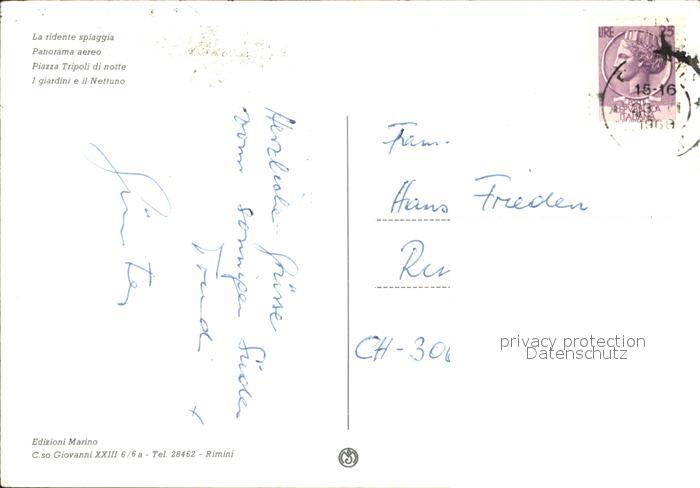 La ridente spiaggia
Panorama aereo
Piazza Tripoli di notte
I giardini e il Nettuno
LIRE 25
15-16
1969
ITALIANA
Herzliche Grüsse
vom sonnigen Süden
Trudi +
Günter
Fam.
Hans Frieden
CH-306
privacy protection
Datenschutz
Edizioni Marino
C.so Giovanni XXIII 6/6a - Tel. 28462 - Rimini